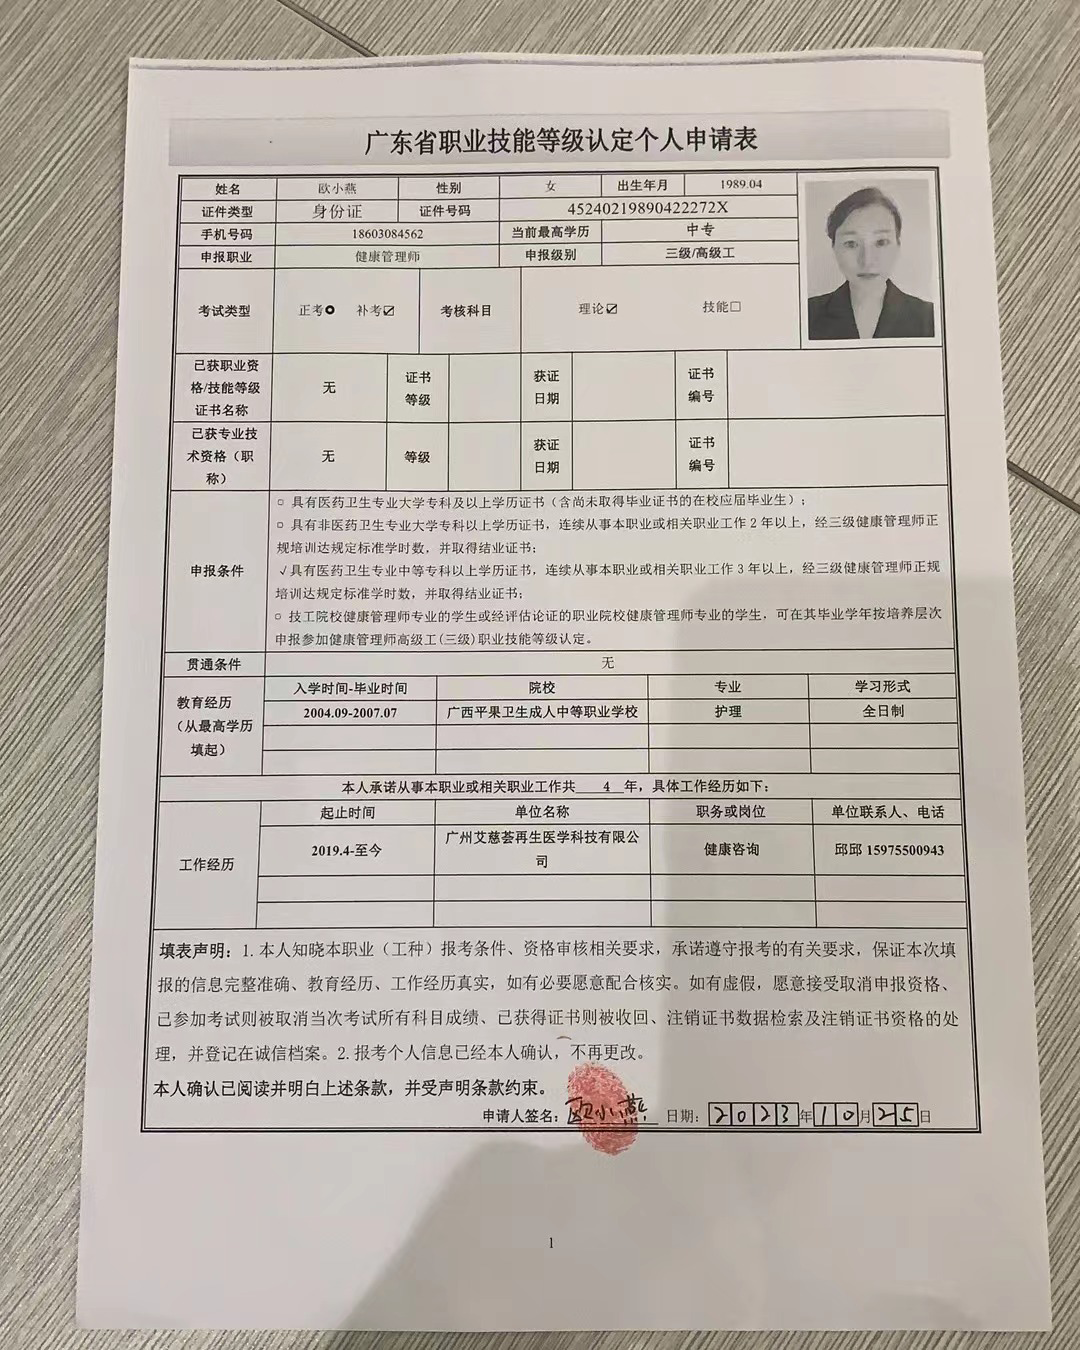 广东省职业技能等级认定个人申请表
姓名 欧小燕 性别 女 出生年月 1989.04
证件类型 身份证 证件号码 45240219890422272X
手机号码 18603084562 当前最高学历 中专
申报职业 健康管理师 申报级别 三级/高级工
考试类型 正考 补考☑ 考核科目 理论☑ 技能☐
已获职业资
格/技能等级
证书名称
无
证书
等级
获证
日期
证书
编号
已获专业技
术资格（职
称）
无
等级
获证
日期
证书
编号
申报条件
□ 具有医药卫生专业大学专科及以上学历证书（含尚未取得毕业证书的在校应届毕业生）；
□ 具有非医药卫生专业大学专科以上学历证书，连续从事本职业或相关职业工作 2 年以上，经三级健康管理师正
规培训达规定标准学时数，并取得结业证书；
√具有医药卫生专业中等专科以上学历证书，连续从事本职业或相关职业工作 3 年以上，经三级健康管理师正规
培训达规定标准学时数，并取得结业证书；
□ 技工院校健康管理师专业的学生或经评估论证的职业院校健康管理师专业的学生，可在其毕业学年按培养层次
申报参加健康管理师高级工(三级)职业技能等级认定。
贯通条件 无
教育经历
（从最高学历
填起）
入学时间-毕业时间 院校 专业 学习形式
2004.09-2007.07 广西平果卫生成人中等职业学校 护理 全日制
本人承诺从事本职业或相关职业工作共 4 年，具体工作经历如下：
工作经历
起止时间 单位名称 职务或岗位 单位联系人、电话
2019.4-至今 广州艾慈荟再生医学科技有限公
司
健康咨询 邱邱 15975500943
填表声明：1.本人知晓本职业（工种）报考条件、资格审核相关要求，承诺遵守报考的有关要求，保证本次填
报的信息完整准确、教育经历、工作经历真实，如有必要愿意配合核实。如有虚假，愿意接受取消申报资格、
已参加考试则被取消当次考试所有科目成绩、已获得证书则被收回、注销证书数据检索及注销证书资格的处
理，并登记在诚信档案。2.报考个人信息已经本人确认，不再更改。
本人确认已阅读并明白上述条款，并受声明条款约束。
申请人签名：欧小燕 日期：2023年10月25日
1